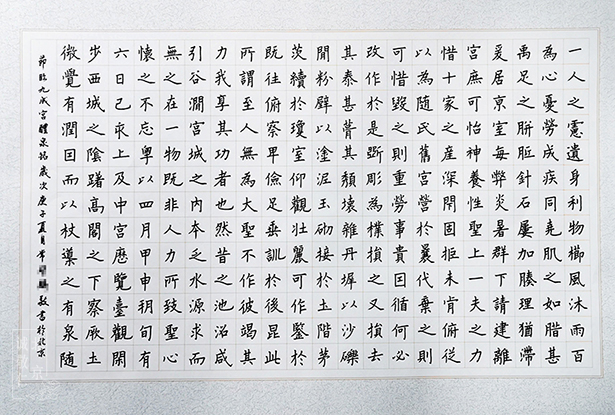 一人之慮遺身利物櫛風沐雨百
為心憂勞成疾同堯肌之如腊甚
禹足之胼胝針石屢加腠理猶滯
爰居京室每弊炎暑群下請建離
宮庶可怡神養性聖上一夫之力
惜十家之産深閇固拒未肯俯從
以為隨氏舊宮營於曩代棄之則
可惜毀之則重勞事貴因循何必
改作於是斲彫為樸損之又損去
其泰甚葺其頹壞雜丹墀以沙礫
閒粉壁以塗泥玉砌接於土階茅
茨續於瓊室仰觀壯麗可作鑒於
既往俯察卑儉足垂訓於後昆此
所謂至人無為大聖不作彼竭其
力我享其功者也然昔之池沼咸
引谷澗宮城之内本乏水源求而
無之在一物既非人力所致聖心
懷之不忘粵以四月甲申朔旬有
六日己亥上及中宮歷覽臺觀閑
步西城之陰躇高閣之下察厥土
微覺有潤因而以杖導之有泉隨
節臨九成宮醴泉銘歲次庚子夏月常敬書於北京